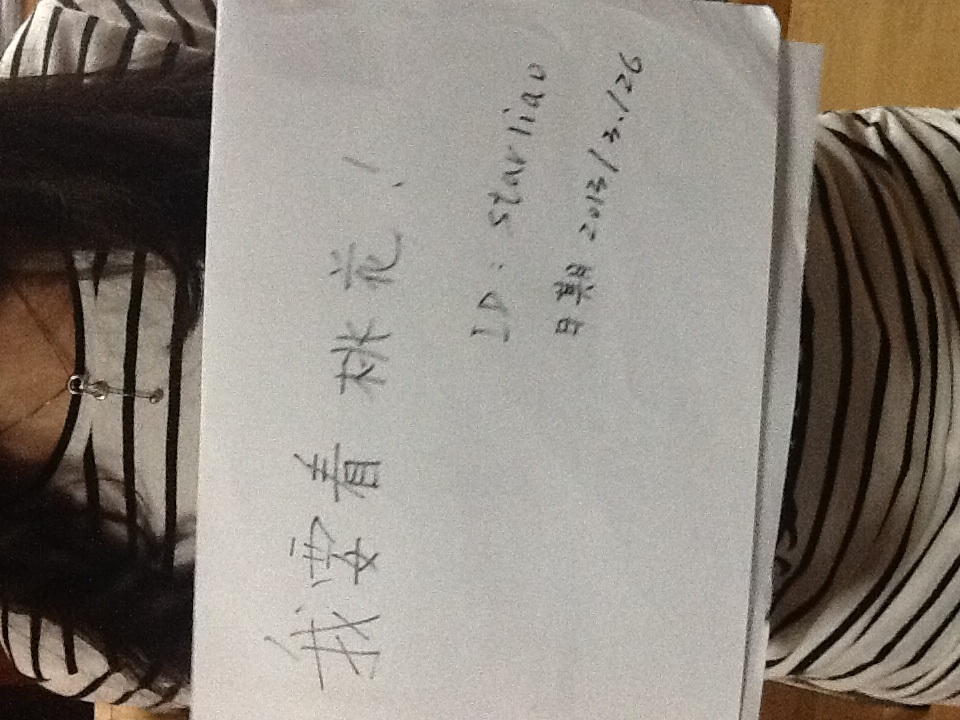 我要看桃花！
ID：starliao
日期 2013/3./26